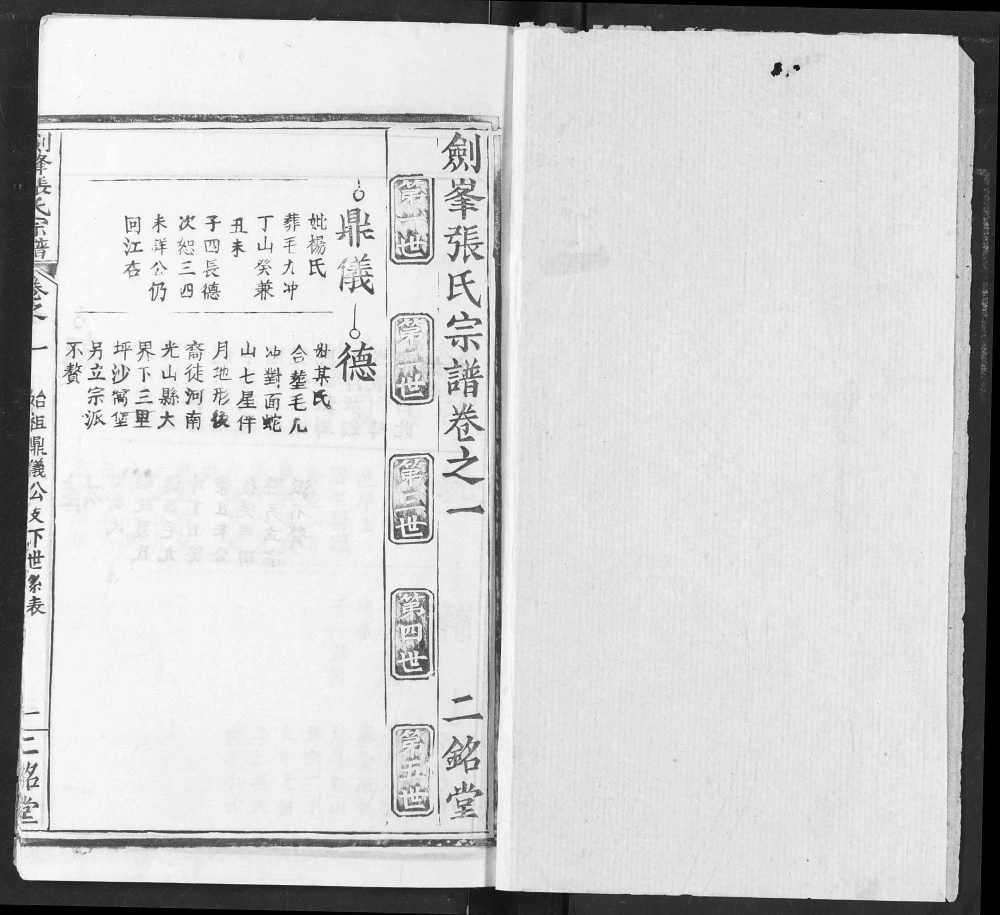 劍峯張氏宗譜卷之一 二銘堂
第一世 第二世 第三世 第四世 第五世
鼎儀
妣楊氏
葬毛九冲
丁山癸兼
丑未
子四長德
次恕三四
未詳公仍
回江右
德
妣某氏
合塟毛九
冲對面蛇
山七星伴
月地形後
裔徒河南
光山縣大
界下三里
坪沙窩堡
另立宗派
不贅
劍峯張氏宗譜 卷之一 始祖鼎儀公支下世系表 二 二銘堂